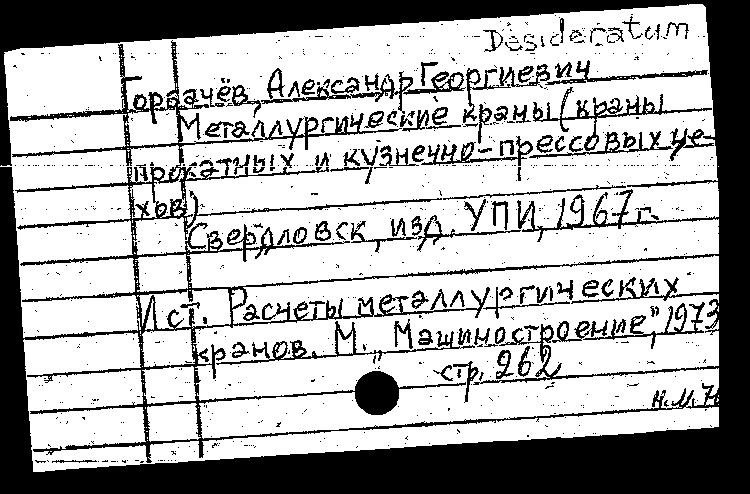 Desideratum
Горбачёв, Александр Георгиевич
Металлургические краны (краны
прокатных и кузнечно-прессовых це-
хов)
Свердловск, изд. УПИ, 1967 г.
Ист. Расчеты металлургических
кранов. М. „Машиностроение", 1973
стр. 262